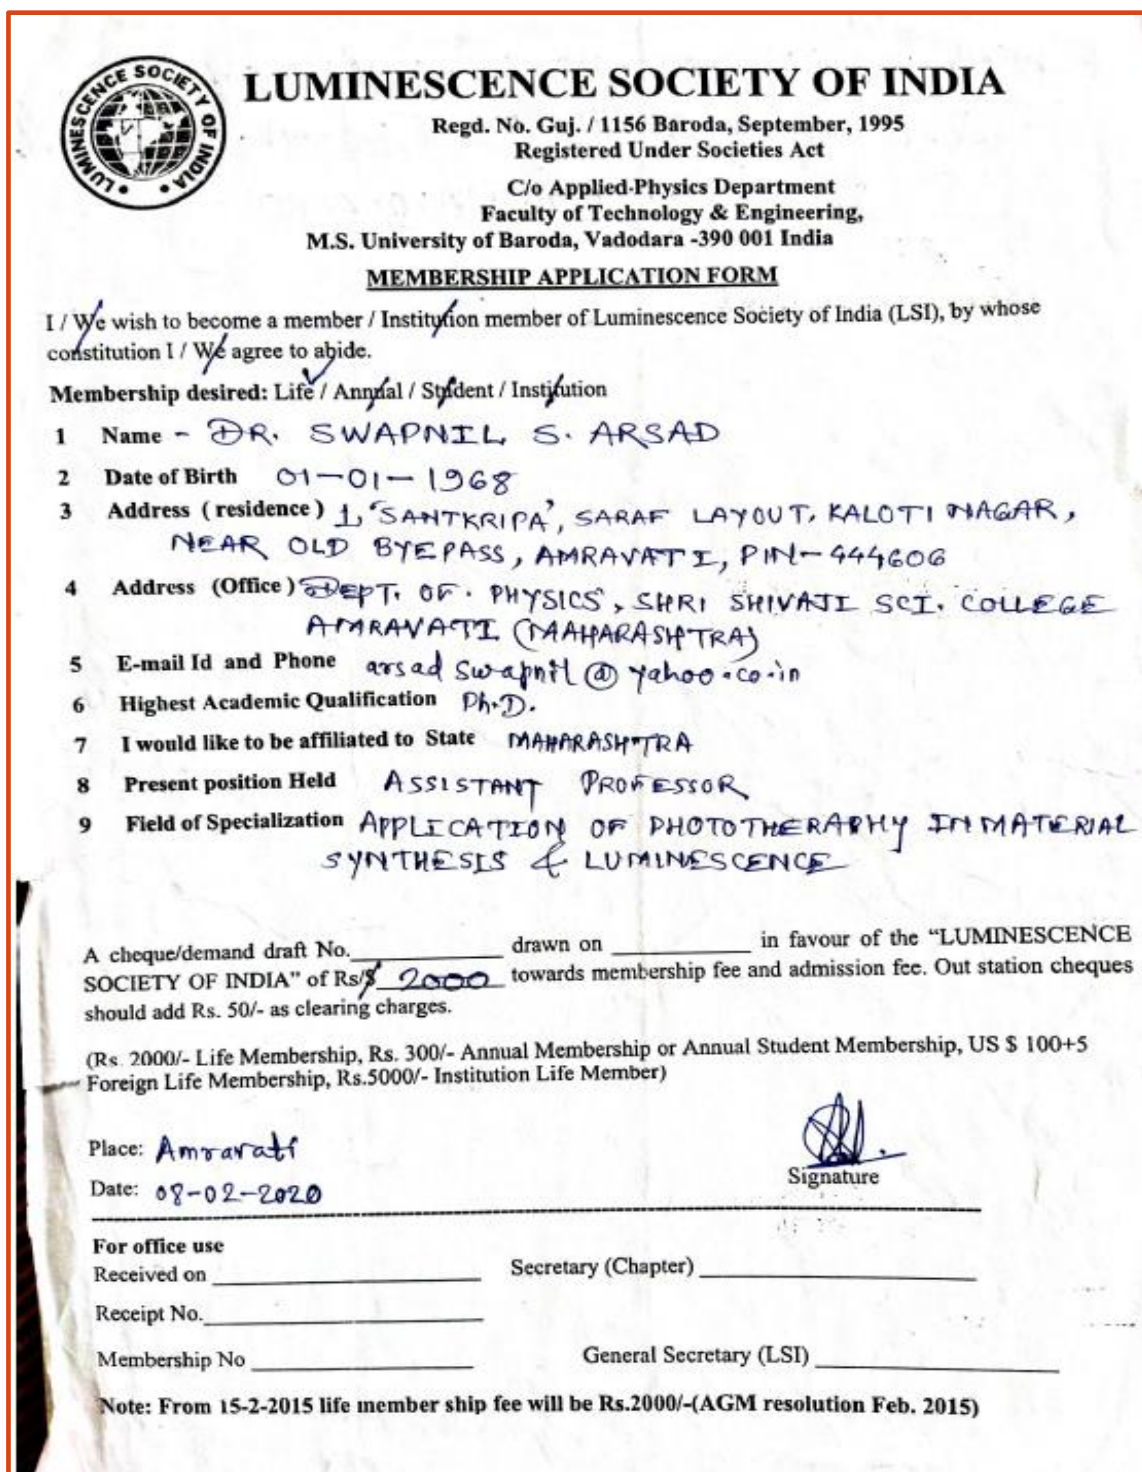 LUMINESCENCE SOCIETY OF INDIA
LUMINESCENCE SOCIETY OF INDIA
Regd. No. Guj. / 1156 Baroda, September, 1995
Registered Under Societies Act
C/o Applied-Physics Department
Faculty of Technology & Engineering,
M.S. University of Baroda, Vadodara -390 001 India
MEMBERSHIP APPLICATION FORM
I / We wish to become a member / Institution member of Luminescence Society of India (LSI), by whose
constitution I / We agree to abide.
Membership desired: Life / Annual / Student / Institution
1 Name - DR. SWAPNIL S. ARSAD
2 Date of Birth 01-01-1968
3 Address ( residence ) 1, 'SANTKRIPA', SARAF LAYOUT, KALOTI NAGAR,
NEAR OLD BYEPASS, AMRAVATI, PIN-444606
4 Address (Office ) DEPT. OF. PHYSICS, SHRI SHIVAJI SCI. COLLEGE
AMRAVATI (MAHARASHTRA)
5 E-mail Id and Phone arsad swapnil @ yahoo.co.in
6 Highest Academic Qualification Ph.D.
7 I would like to be affiliated to State MAHARASHTRA
8 Present position Held ASSISTANT PROFESSOR
9 Field of Specialization APPLICATION OF PHOTOTHERAPHY IN MATERIAL
SYNTHESIS & LUMINESCENCE
A cheque/demand draft No. drawn on in favour of the "LUMINESCENCE
SOCIETY OF INDIA" of Rs/$ 2000 towards membership fee and admission fee. Out station cheques
should add Rs. 50/- as clearing charges.
(Rs. 2000/- Life Membership, Rs. 300/- Annual Membership or Annual Student Membership, US $ 100+5
Foreign Life Membership, Rs.5000/- Institution Life Member)
Place: Amravati
Signature
Date: 08-02-2020
For office use
Received on Secretary (Chapter)
Receipt No.
Membership No General Secretary (LSI)
Note: From 15-2-2015 life member ship fee will be Rs.2000/-(AGM resolution Feb. 2015)